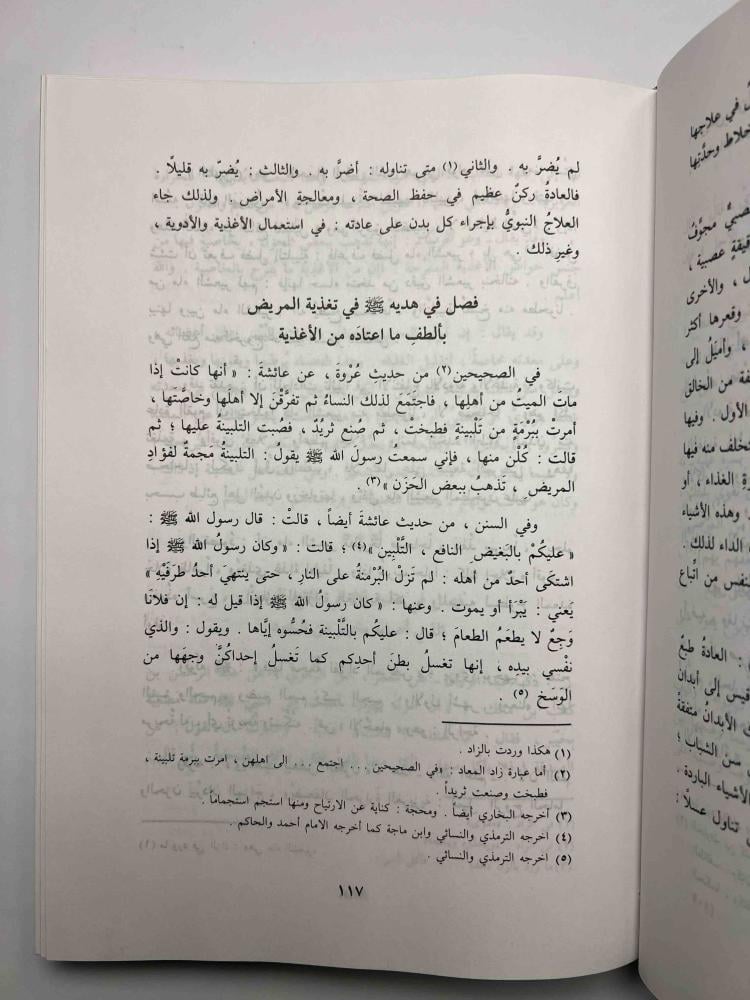 لم يُضرَّ به . والثاني(١) متى تناوله : أضرَّ به . والثالث : يُضرّ به قليلاً .
فالعادةُ ركنٌ عظيم في حفظ الصحة ، ومعالجةِ الأمراض . ولذلك جاء
العلاجُ النبويُّ بإجراء كل بدن على عادته : في استعمال الأغذية والأدوية ،
وغيرِ ذلك .
فصل في هديه ﷺ في تغذية المريض
بألطفِ ما اعتادَه من الأغذية
في الصحيحين(٢) من حديثِ عُرْوةَ ، عن عائشةَ : « أنها كانتْ إذا
ماتَ الميتُ من أهلِها ، فاجتمَعَ لذلك النساءُ ثم تفرَّقْنَ إلا أهلَها وخاصَّتَها ،
أمرتْ بِبُرْمَةٍ من تَلْبينةٍ فطبختْ ، ثم صُنع ثريْدٌ ، فصُبت التلبينةُ عليها ؛ ثم
قالت : كُلْن منها ، فإني سمعتُ رسولَ الله ﷺ يقولُ : التلبينةُ مَجمةٌ لفؤادِ
المريضِ ، تَذهبُ ببعض الحَزَن »(٣) .
وفي السنن ، من حديث عائشةَ أيضاً ، قالتْ : قال رسول الله ﷺ :
« عليكُمْ بالبَغيضِ النافع ، التَّلْبِين »(٤) ؛ قالت : « وكان رسولُ الله ﷺ إذا
اشتكَى أحدٌ من أهله : لم تَزلْ البُرْمةُ على النارِ ، حتى ينتهيَ أحدُ طرَفَيْهِ »
يَعني : يَبْرَأ أو يموت . وعنها : « كان رسولُ الله ﷺ إذا قيل له : إن فلانًا
وَجِعٌ لا يطعَمُ الطعامَ ؛ قال : عليكُم بالتَّلْبينة فحُسُّوه إيَّاها . ويقول : والذي
نفْسي بيدِه ، إنها تغسلُ بطنَ أحدِكم كما تَغسلُ إحداكُنَّ وجهَها من
الوَسَخ (٥) .
(١) هكذا وردت بالزاد .
(٢) أما عبارة زاد المعاد : «في الصحيحين ... اجتمع ... الى اهلهن ، امرت ببرمة تلبينة ،
فطبخت وصنعت ثريداً .
(٣) أخرجه البخاري أيضاً . ومحجة : كناية عن الارتياح ومنها استجم استجماماً .
(٤) اخرجه الترمذي والنسائي وابن ماجة كما أخرجه الامام أحمد والحاكم .
(٥) اخرجه الترمذي والنسائي .
١١٧
في علاجها
خلاط وحدَّتِها
صبيٌّ مجوَّفٌ
قيقةٍ عصبية ،
ل ، والأخرى
وقعرها أكثر
، وأميَلُ إلى
فة من الخالق
الأول . وفيها
تخلف منه فيها
رةِ الغذاء ، أو
وهذه الأشياء
الداء لذلك .
نفس من اتِّباع
: العادةُ طبعٌ
قيس إلى أبدان
الأبدانُ متفقةٌ
سن الشباب ؛
لأشياء الباردة .
تناول عسلًا :